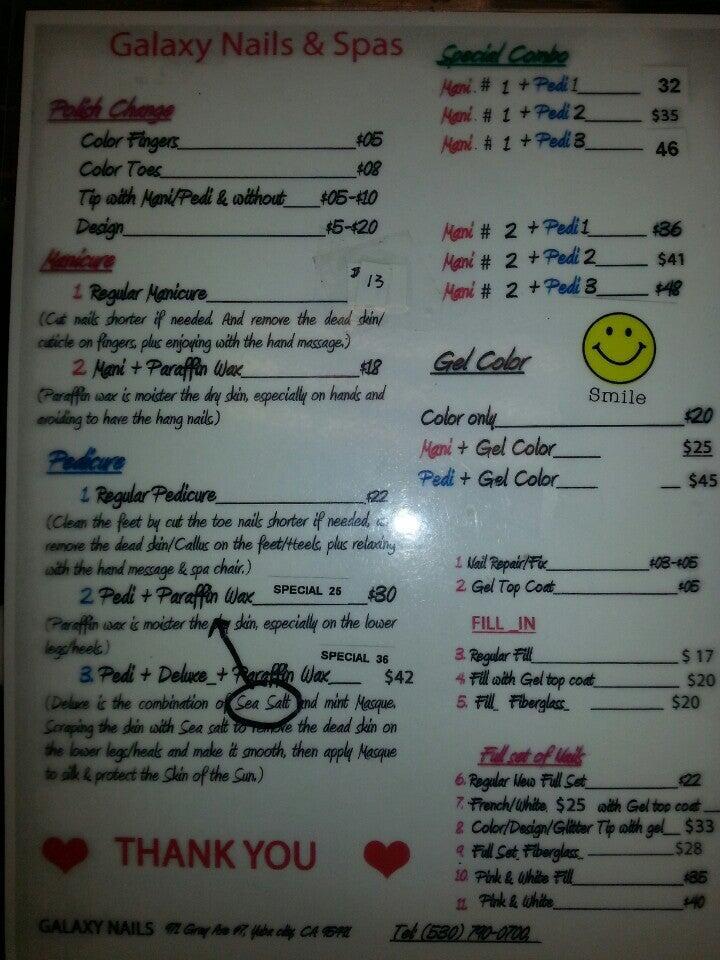 Galaxy Nails & Spas
Polish Change
Color Fingers $05
Color Toes $08
Tip with Mani/Pedi & without $05-$10
Design $5-$20
Manicure
1 Regular Manicure $ 13
(Cut nails shorter if needed. And remove the dead skin/
cuticle on fingers, plus enjoying with the hand massage.)
2. Mani + Paraffin Wax $18
(Paraffin wax is moister the dry skin, especially on hands and
avoiding to have the hang nails.)
Pedicure
1 Regular Pedicure $22
(Clean the feet by cut the toe nails shorter if needed,
remove the dead skin/Callus on the feet/Heels, plus relaxing
with the hand message & spa chair.)
2 Pedi + Paraffin Wax SPECIAL 25 $30
(Paraffin wax is moister the dry skin, especially on the lower
legs/heels.)
SPECIAL 36
3. Pedi + Deluxe + Paraffin Wax $42
(Deluxe is the combination of Sea Salt and mint Masque.
Scraping the skin with Sea salt to remove the dead skin on
the lower legs/heals and make it smooth, then apply Masque
to silk & protect the Skin of the Sun.)
THANK YOU
GALAXY NAILS 971 Gray Ave #7, Yuba city, CA 95991 Tel: (530) 790-0700
Special Combo
Mani. # 1 + Pedi 1 32
Mani. # 1 + Pedi 2 $35
Mani. # 1 + Pedi 3 46
Mani # 2 + Pedi 1 $36
Mani # 2 + Pedi 2 $41
Mani # 2 + Pedi 3 $48
Smile
Gel Color
Color only $20
Mani + Gel Color $25
Pedi + Gel Color $45
1 Nail Repair/Fix $03-$05
2. Gel Top Coat $05
FILL_IN
3. Regular Fill $ 17
4. Fill with Gel top coat $20
5. Fill Fiberglass $20
Full set of Nails
6. Regular New Full Set $22
7. French/White. $25 with Gel top coat
8 Color/Design/Glitter Tip with gel $33
9 Full Set Fiberglass $28
10. Pink & White Fill $35
11 Pink & White $40